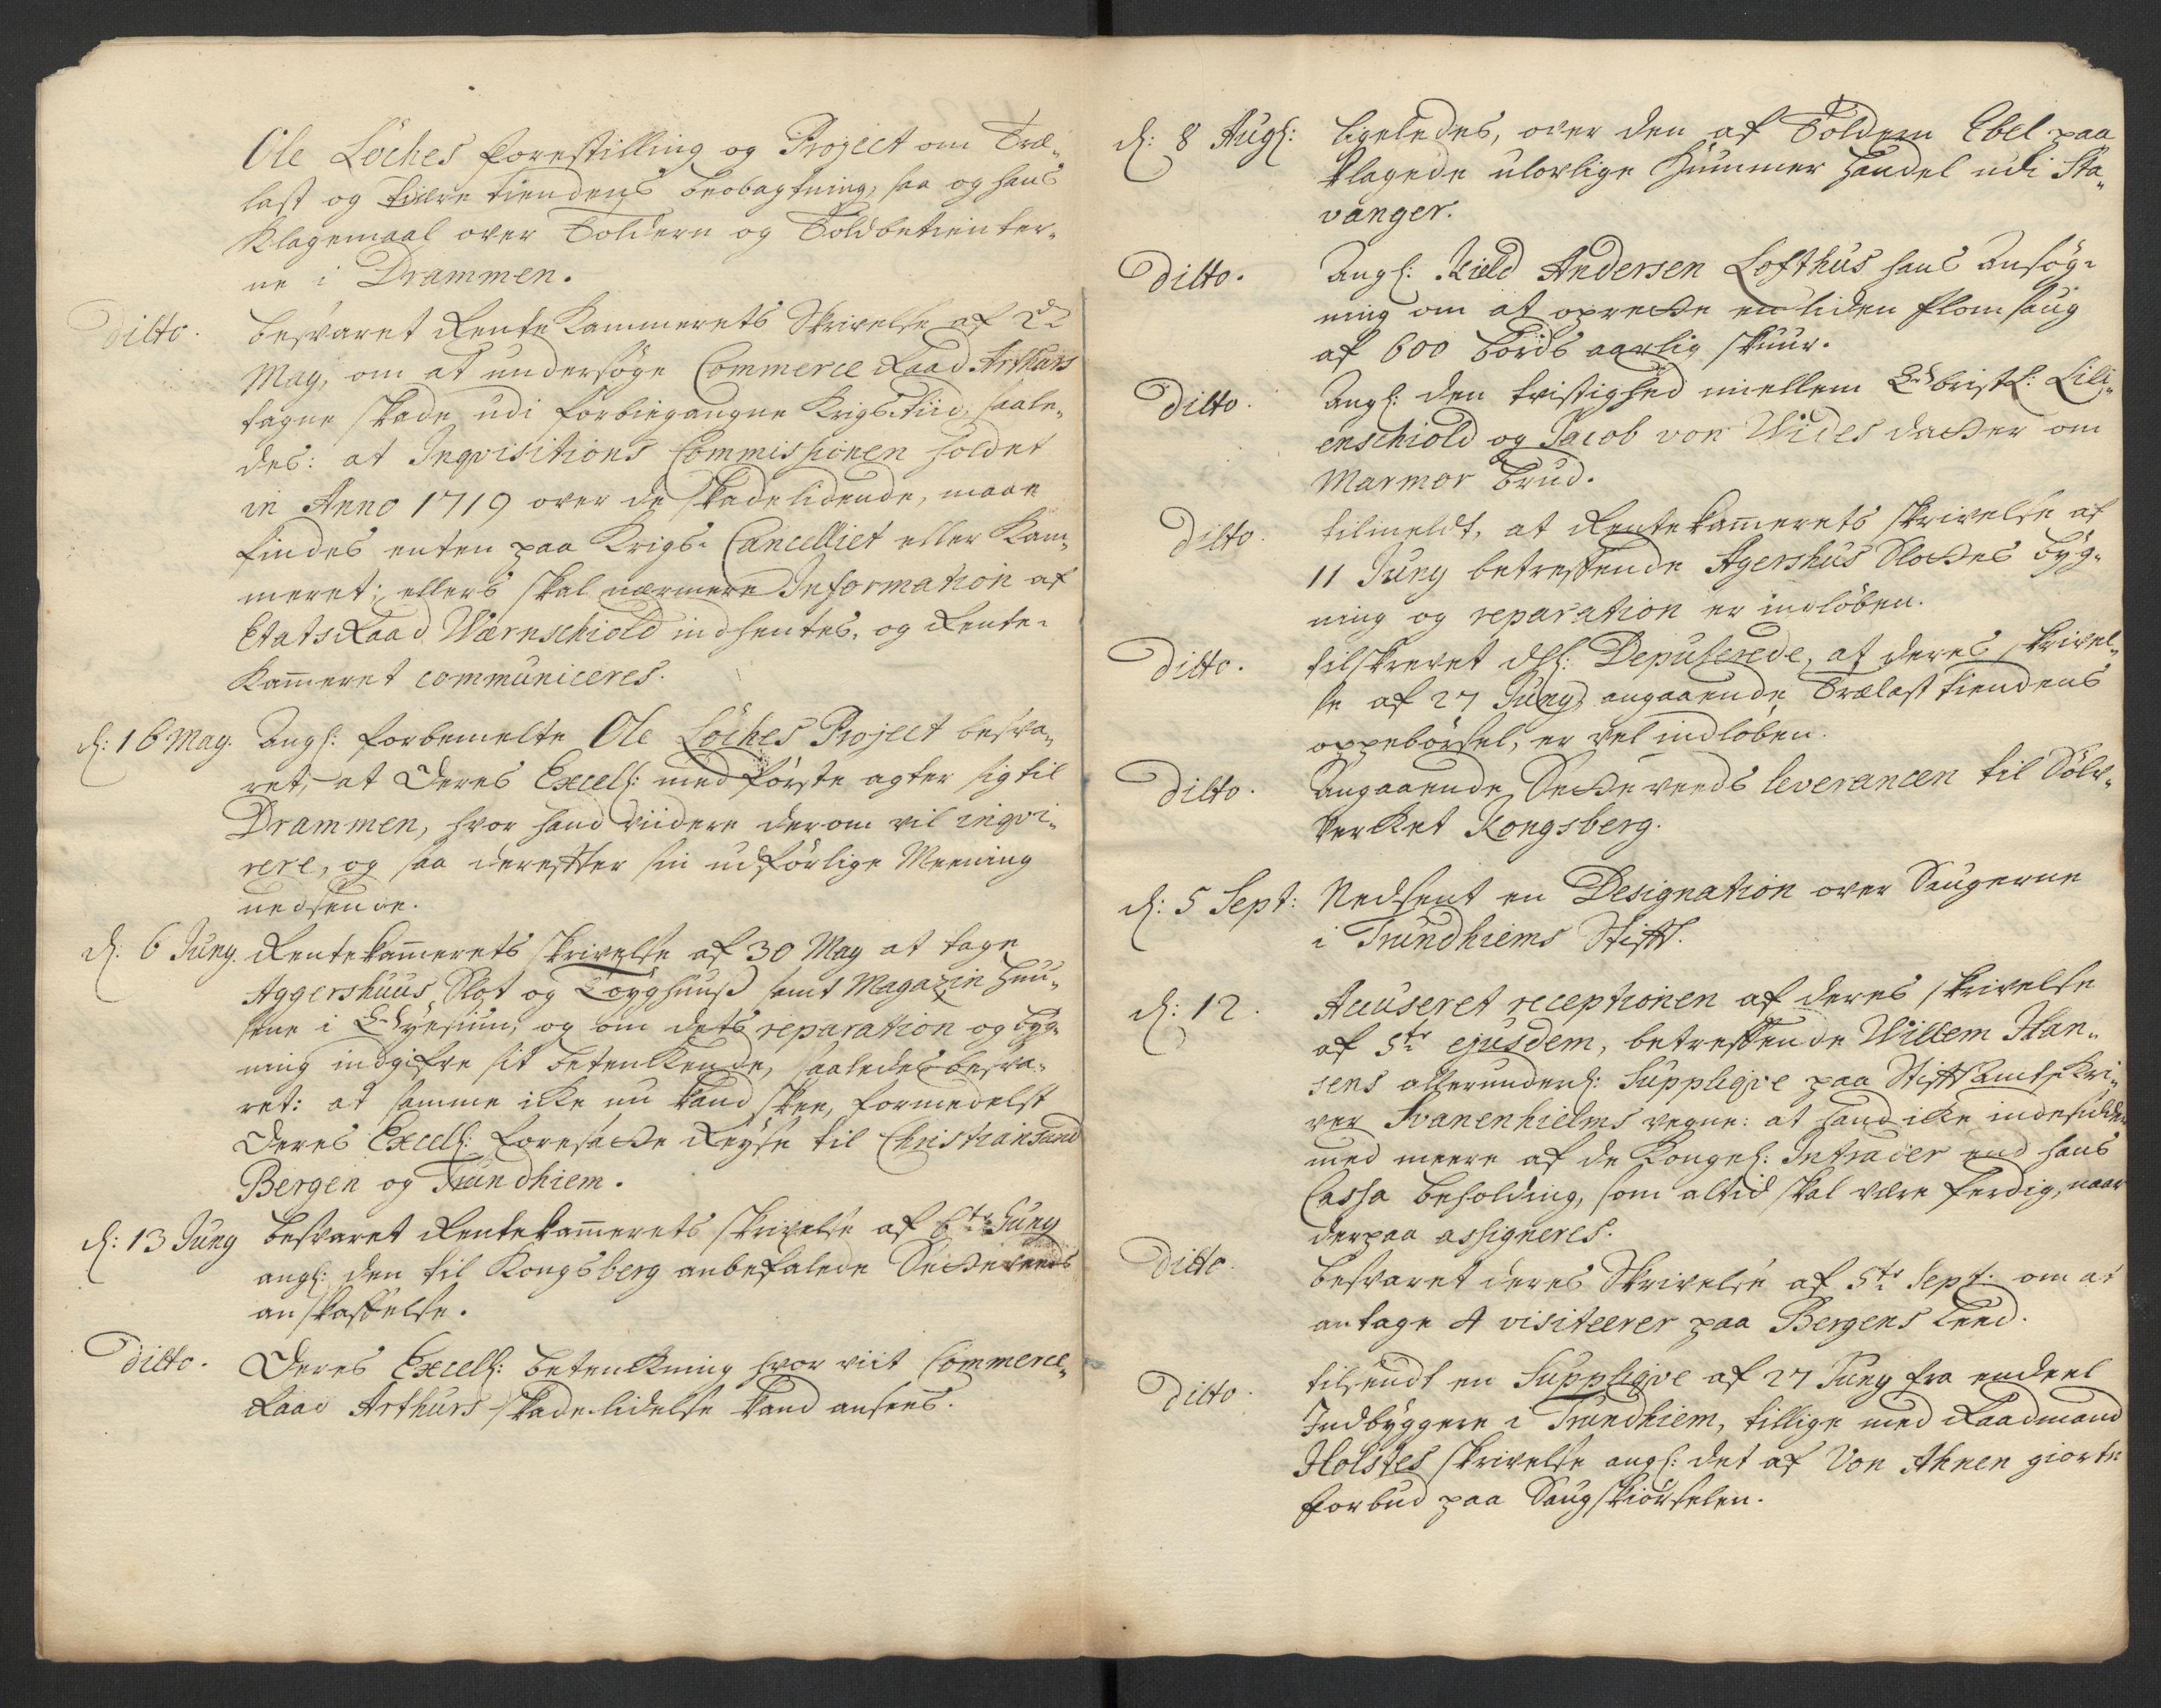 Ole Löches forestilling og Project om Træ-
last og tiære tiendens beobagtning, saa og hans
Klagemaal over Tolderen og Toldbetienter-
ne i Drammen.
Ditto. besvaret Rente Kammerets Skrivelse af 22
May, om at undersöge Commerce Raad Arthurs
tagne skade udi forbigangne Krigs tiid, saale-
des: at Inqvisitions Commissionen holdet
in Anno 1719 over de skadelidende, maae
findes enten paa Krigs-Cancelliet eller Kam-
meret; ellers skal nærmere Information af
Etats Raad Wærnschiold indhentes, og Rente-
Kammeret communiceres.
d: 16 May. Angl: forbemelte Ole Löches Project besva-
ret, at Deres Excell: med förste agter sig til
Drammen, hvor hand viidere derom vil inqvi-
rere, og saa derefter sin udförlige Meening
nedsende.
d: 6 Juny. Rentekammerets skrivelse af 30 May at tage
Aggershuus Slot og Töyghuus samt Magazin Huu-
sene i Öyesiun, og om dets reparation og byg-
ning indgifve sit betenkende, saaledes besva-
ret: at samme icke nu kand skee, formedelst
Deres Excell: foresatte Reyse til Christiansand
Bergen og Trundhiem.
d: 13 Juny besvaret Rentekammerets skrivelse af 6te Juny
angl: den til Kongsberg anbefalede Setteveeds
anskaffelse.
Ditto. Deres Excell: betenkning hvor viit Commerce-
Raad Arthurs skadelidelse kand ansees.
d: 8 Augl: ligeledes, over den af Tolderen Ebel paa
klagede ulovlige Hummer Handel udi Sta-
vanger.
Ditto. Angl: Kield Andersen Lofthus hans Ansög-
ning om at oprette en liden flomsaug
af 600 bords aarlig skuur.
Ditto. Angl: den tvistighed mellem Obristl: Lili-
enschiold og Jacob von Wides datter om
Marmor Brud.
Ditto. tilmeldt, at Rentekammerets skrivelse af
11 Juny betreffende Agershus Slottes byg-
ning og reparation er indlöben.
Ditto. tilskrevet dhl: Deputerede, at deres skrivel-
se af 27 Juny angaaende Trælast tiendens
oppebörsel, er vel indlöben.
Ditto. Angaaende Setteveeds leverancen til Sölv-
verket Kongsberg.
d: 5 Sept: Nedsent en Designation over Saugerne
i Trundhiems Stift.
d: 12. Accuseret receptionen af deres skrivelse
af 5te ejusdem, betreffende Willem Han-
sens allerunderd: Suppliqve paa Stiftamtskri-
ver Svanenhielms vegne: at hand icke indesidder
med meere af de Kongel: Intrader end hans
Cassa beholding, som altid skal være ferdig, naar
derpaa assigneres.
Ditto. besvaret deres Skrivelse af 5te Sept: om at
antage 4 visiteerer paa Bergens Leed.
Ditto. tilsendt en Suppliqve af 27 Juny fra endeel
Indbyggere i Trundhiem, tillige med Raadmand
Holstes skrivelse angl: det af Von Ahnen giorte
forbud paa Saugskiörselen.